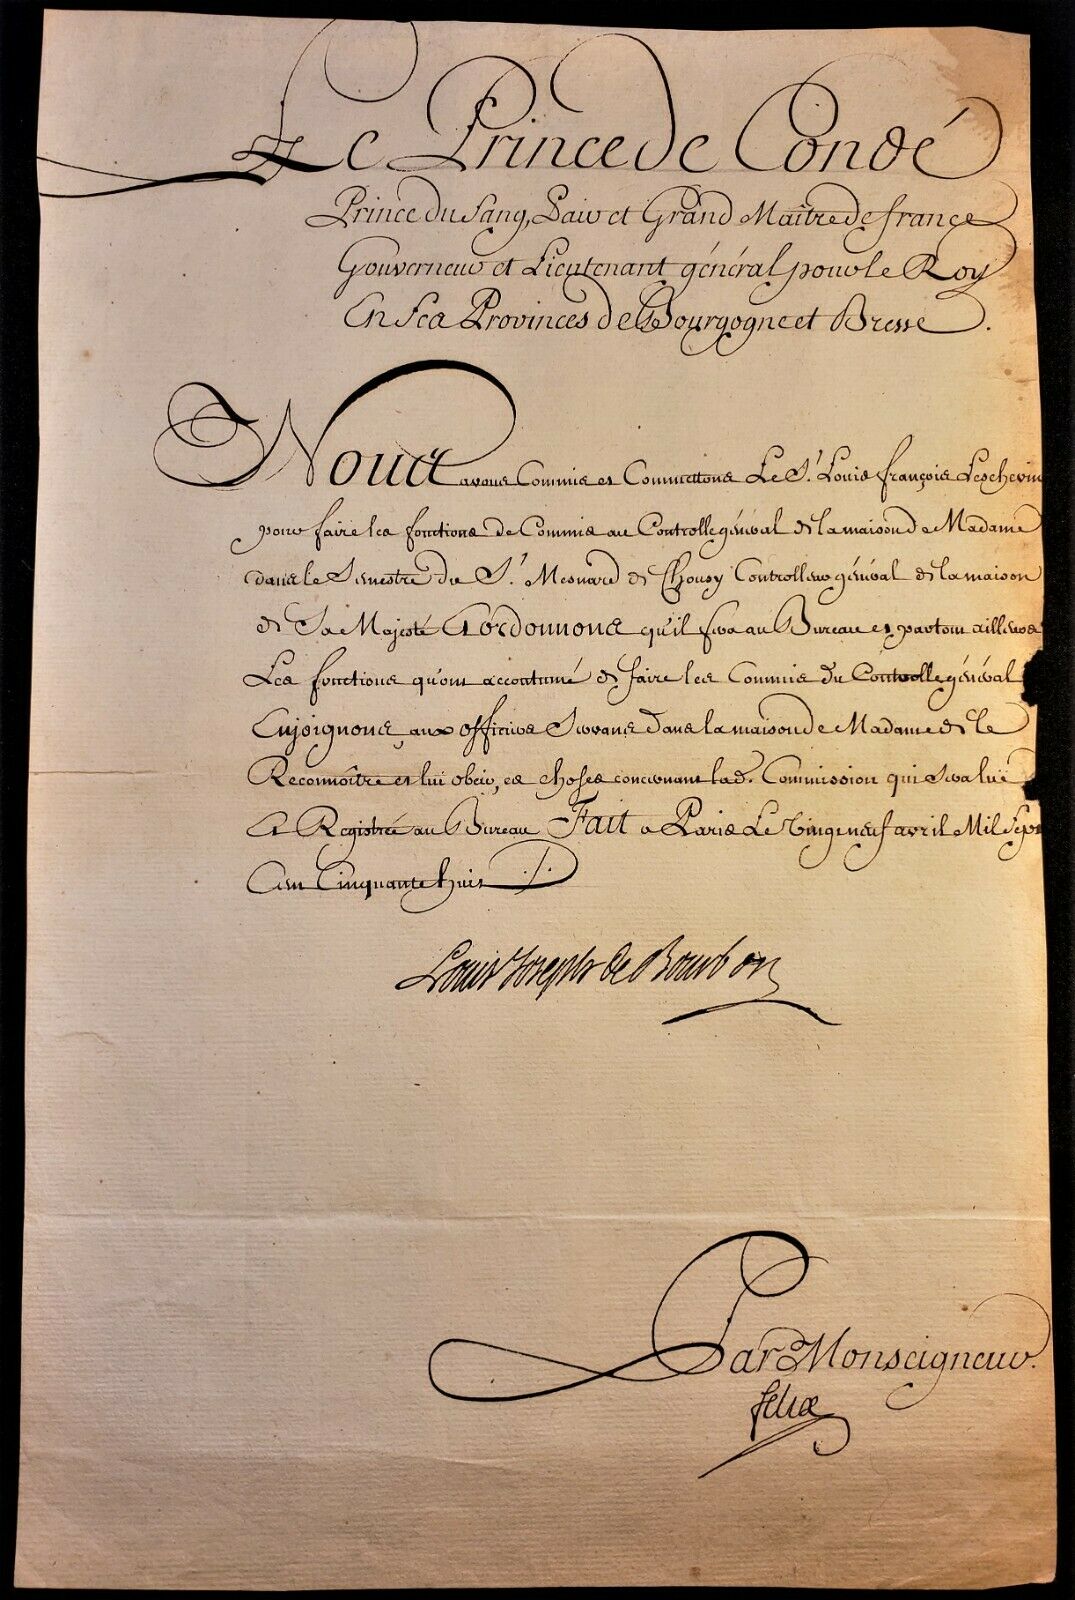 Le Prince de Condé
Prince du Sang, Pair et Grand Maître de france
Gouverneur et Lieutenant général pour le Roy
En ses Provinces de Bourgogne et Bresse.
Nous avons Commis et Commettons Le Sr. Louis françois Leschevin
pour faire les fonctions de Commis au Controlle général de la maison de Madame
dans le Semestre du Sr. Mesnard de Chousy Controlleur général de la maison
de Sa Majesté Et ordonnons qu'il sera au Bureau et partout ailleurs
Les fonctions qu'ont accoutumé de faire les Commis du Controlle général
Enjoignons aux officiers Servans dans la maison de Madame de le
Reconnoître et lui obeir, es choses concernant lad. Commission qui Sera lüe
Et Registrée au Bureau Fait a Paris Le Vingt neuf avril Mil Sept
Cent Cinquante huit ./.
Louis Joseph de Bourbon
Par Monseigneur.